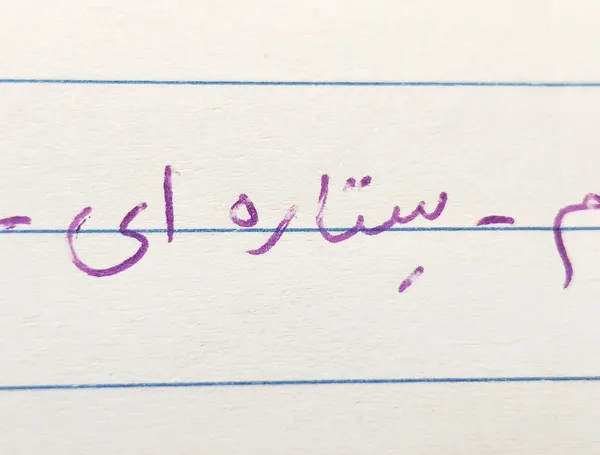 م - سِتاره ای -